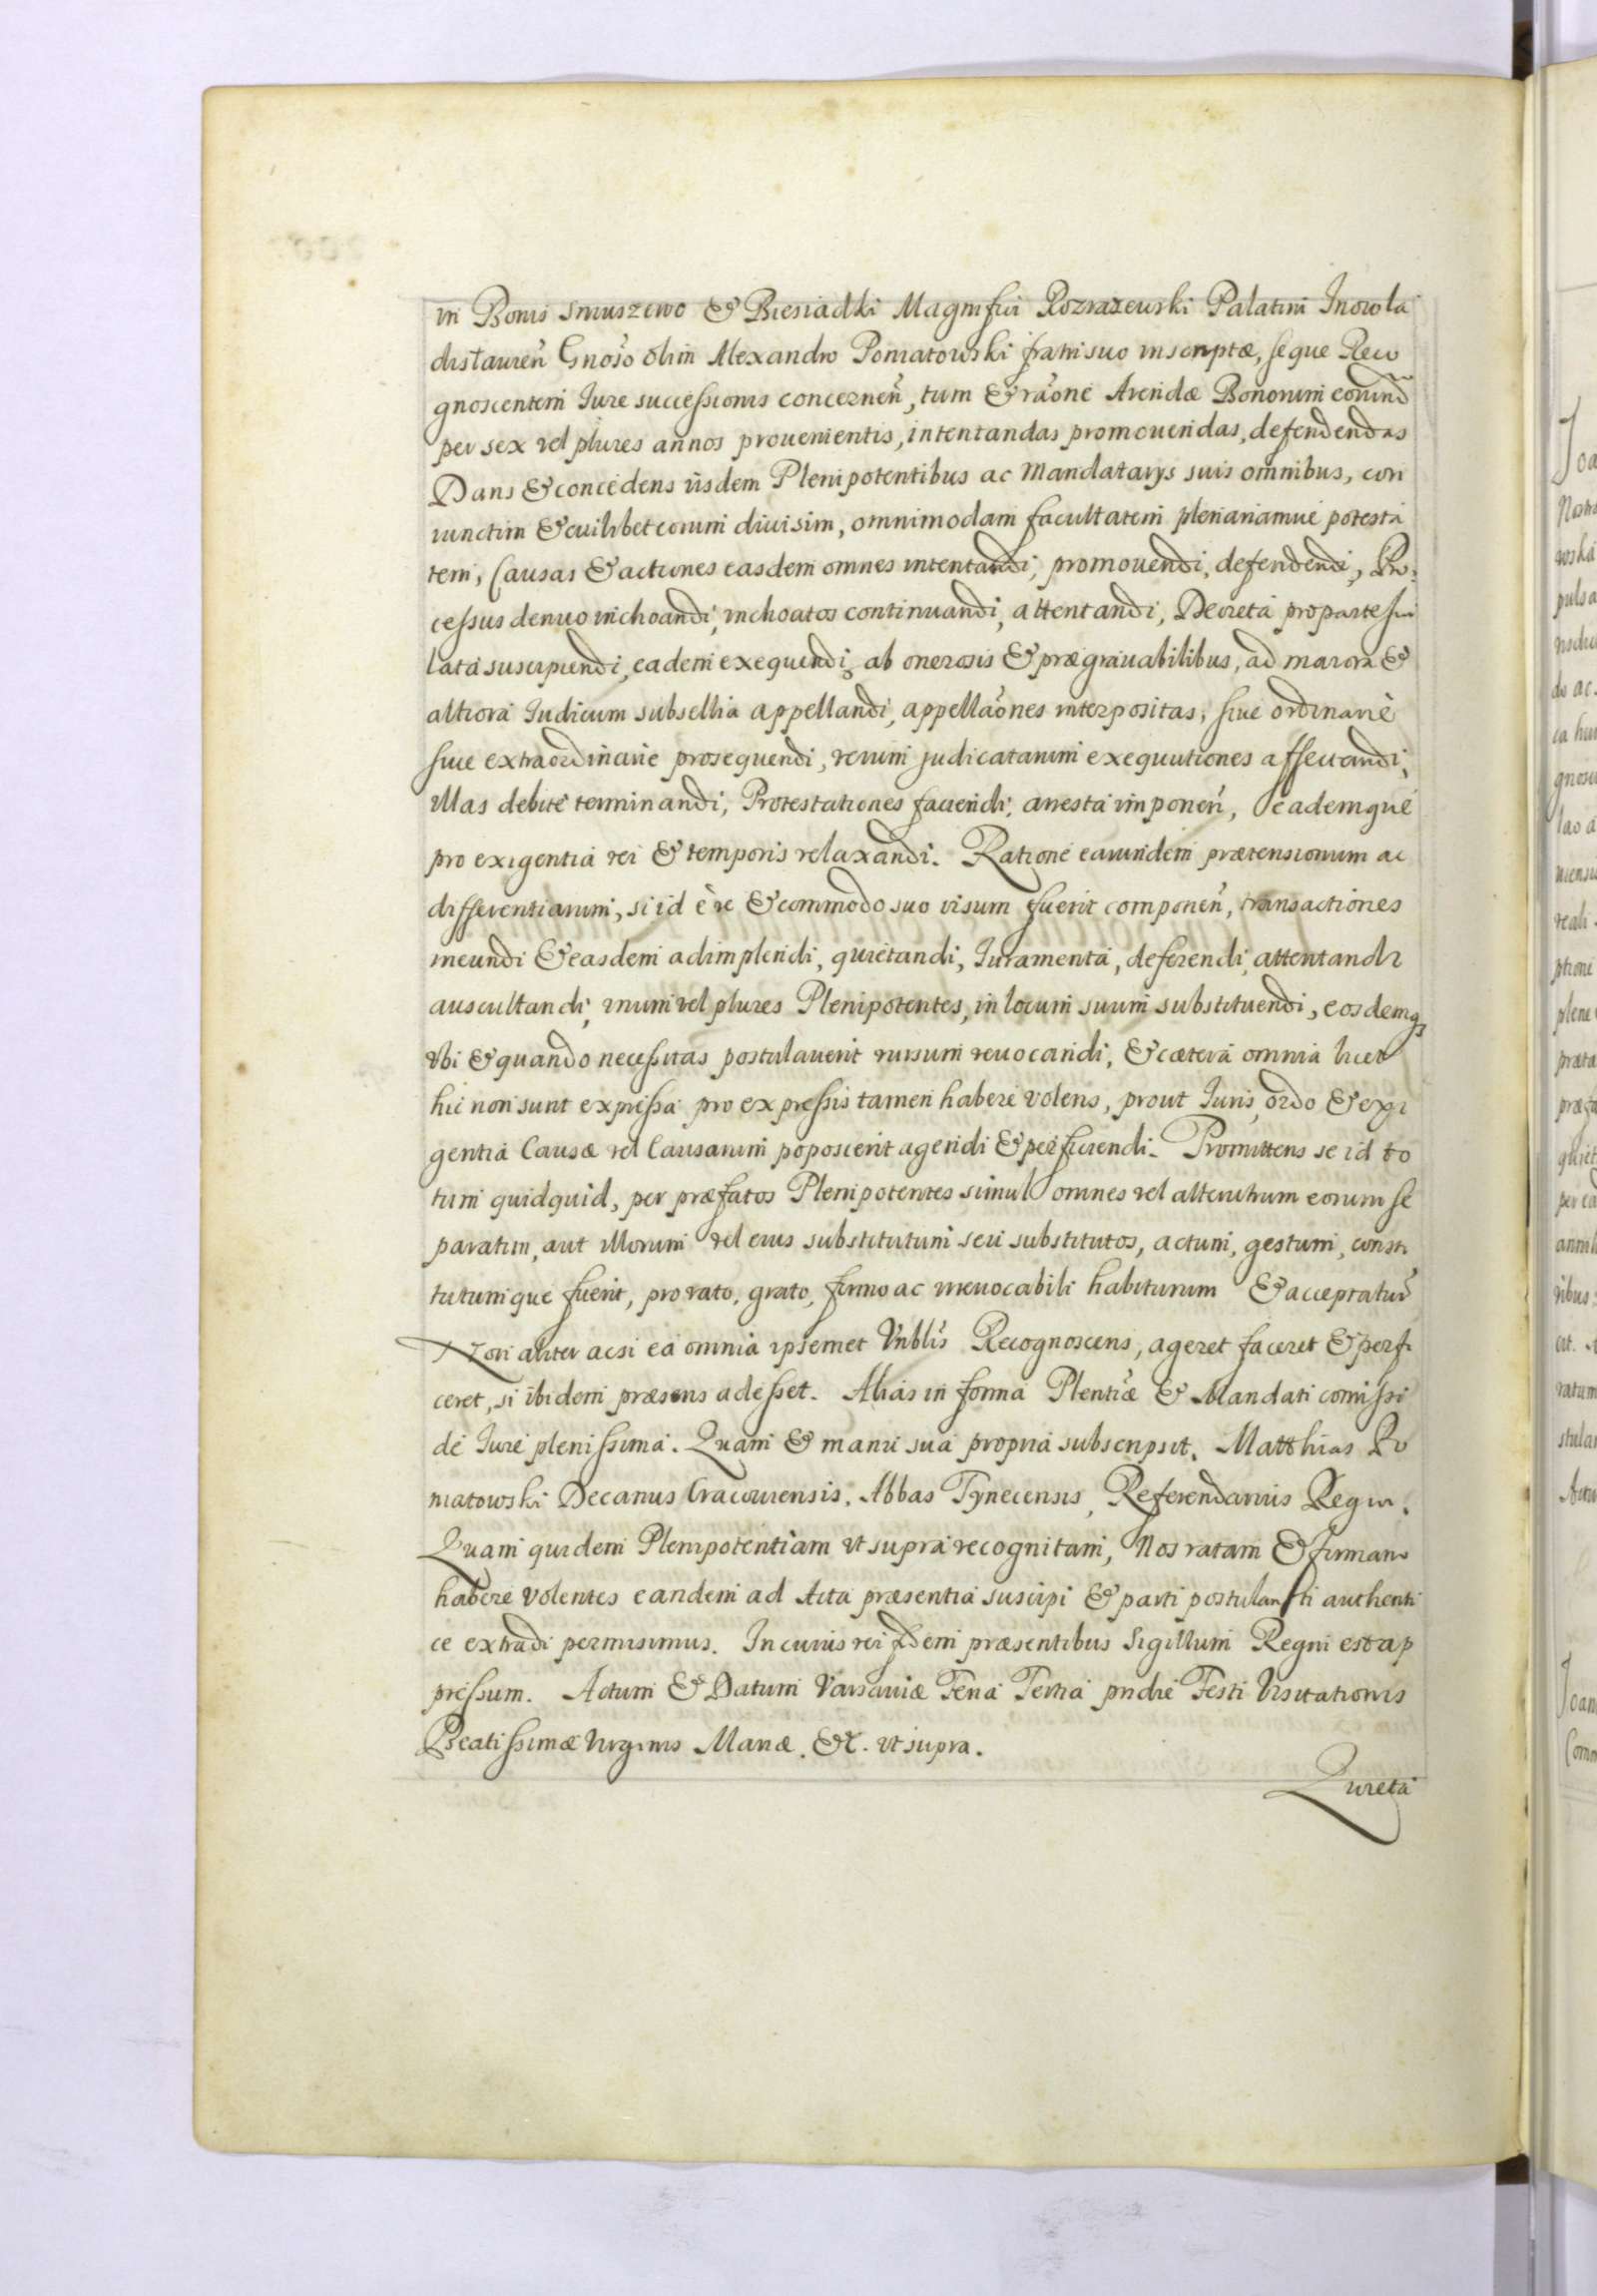 in Bonis Smuszewo & Biesiadki Magnifici Rozrażewski Palatini Inowla
dislauien̄ Gnoso olim Alexandro Poniatowski fratri suo inscriptæ, seque Reco
gnoscentem Iure successionis concernen̄, tum & rāone Arendæ Bonorum eorund
per sex vel plures annos prouenientis, intentandas promouendas, defendendas
Dans & concedens iisdem Plenipotentibus ac Mandatarys suis omnibus, con
iunctim & cuilibet eorum diuisim, omnimodam facultatem plenariamue potesta
tem, Causas & actiones easdem omnes intentandi, promouendi, defendendi, Pro:
cessus denuo inchoandi, inchoatos continuandi, attentandi, Decreta pro parte sui
lata suscipiendi, eadem exequendi, ab onerosis & prægrauabilibus, ad maiora &
altiora Iudicum subsellia appellandi, appellāones interpositas, siue ordinariè
siue extraordinarie prosequendi, rerum judicatarum exequutiones affectandi,
illas debite terminandi, Protestationes faciendi, arresta imponen̄, eademque
pro exigentia rei & temporis relaxandi. Ratione earundem prætensionum ac
differentiarum, si id è re & commodo suo visum fuerit componen̄, transactiones
ineundi & easdem adimplendi, quietandi, Iuramenta, deferendi, attentandi
auscultandi, vnum vel plures Plenipotentes, in locum suum substituendi, eosdemq3
vbi & quando necessitas postulauerit rursum reuocandi, & cætera omnia licet
hic non sunt expressa pro expressis tamen habere volens, prout Iuris, ordo & exi
gentia Causæ vel Causarum poposcerit agendi & perficiendi. Promittens se id to
tum quidquid, per præfatos Plenipotentes simul omnes vel alterutrum eorum se
paratim, aut illorum vel eius substitutum seu substitutos, actum, gestum, consti
tutumque fuerit, pro rato, grato, firmo ac irreuocabili habiturum & acceptatur̄
Non aliter acsi ea omnia ipsemet Vnblis Recognoscens, ageret faceret & perfi
ceret, si ibidem præsens adesset. Alias in forma Plentiæ & Mandati comissi
de Iure plenissima. Quam & manu sua propria subscripsit. Matthias Po
niatowski Decanus Cracouiensis, Abbas Tynecensis, Referendarius Regni.
Quam quidem Plenipotentiam vt supra recognitam, Nos ratam & firmam
habere volentes eandem ad Acta præsentia suscipi & parti postulanti authenti
ce extradi permisimus. In cuius rei fidem præsentibus Sigillum Regni est ap
pressum. Actum & Datum Varsauiæ Feria Tertia pridie Festi Visitationis
Beatissimæ Virginis Mariæ. &c. vt supra.
Quieta